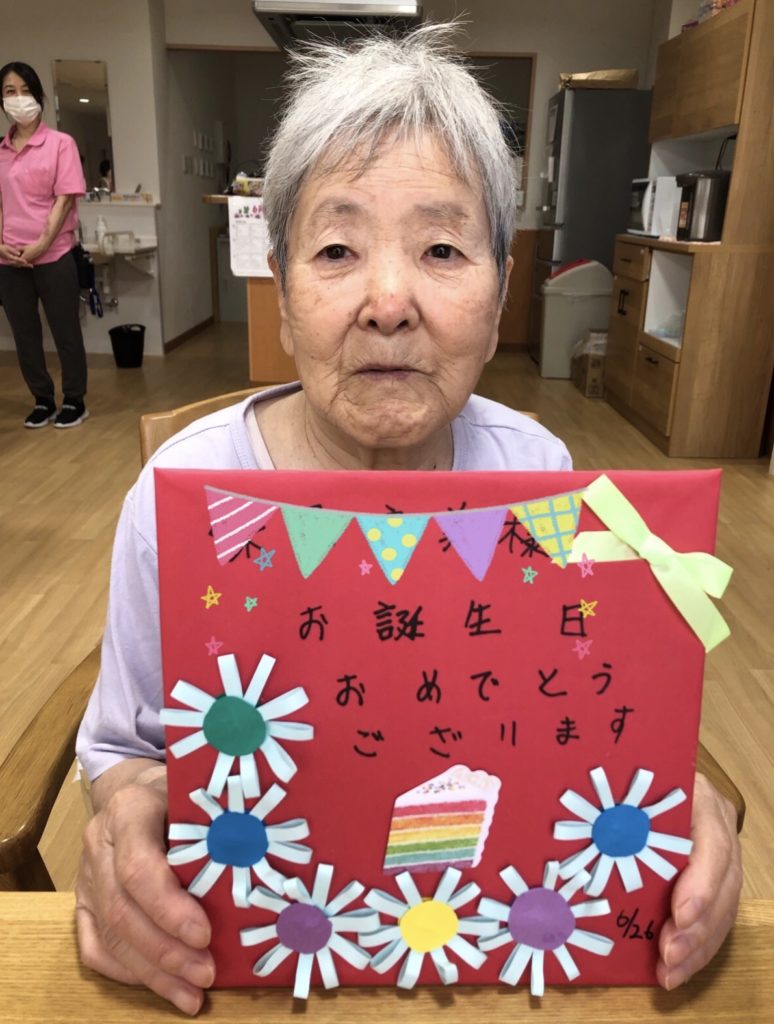 様
お誕生日
おめでとう
ございます
6/26